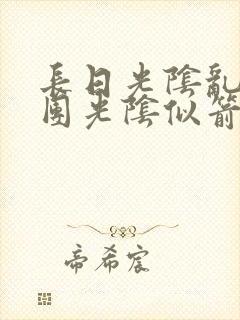 長日光陰亂
團光陰似箭
帝希宸